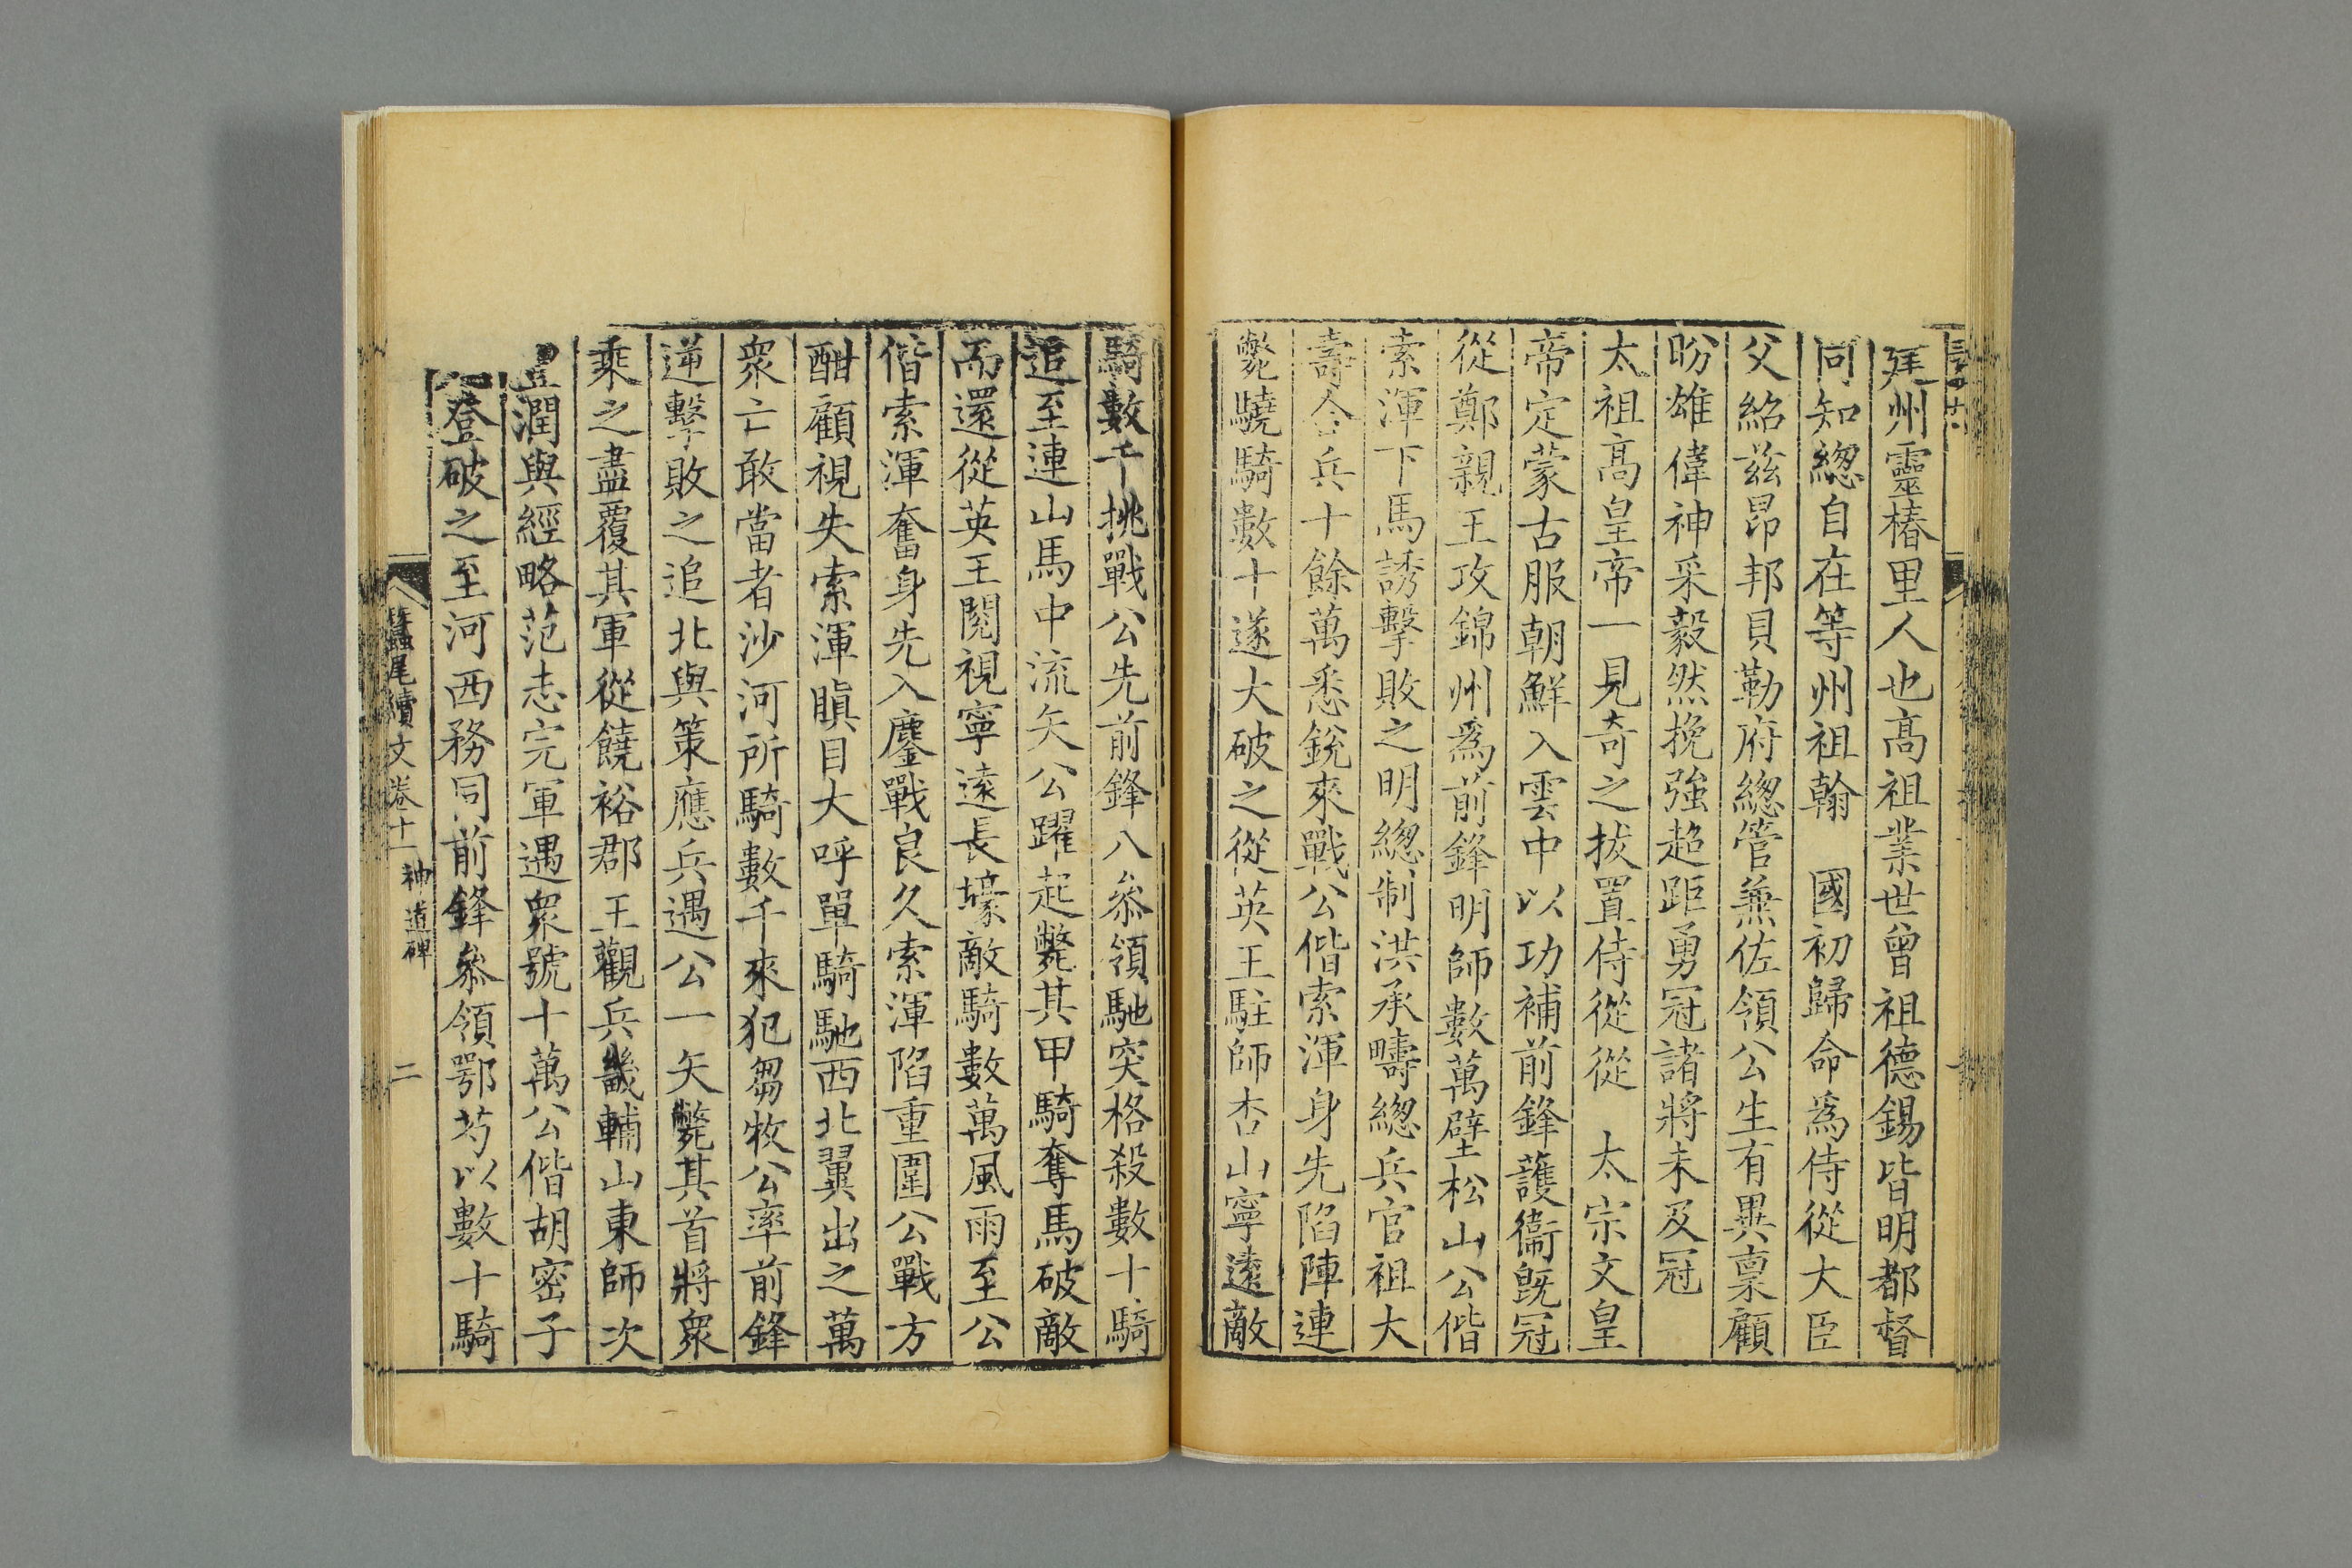 廷州靈椿里人也高祖業世曾祖德錫皆明都督
同知總自在等州祖翰　國初歸命爲侍從大臣
父紹兹昂邦貝勒府總管兼佐領公生有異稟顧
盼雄偉神采毅然挽強超距勇冠諸將未及冠
太祖高皇帝一見奇之拔置侍從從　太宗文皇
帝定蒙古服朝鮮入雲中以功補前鋒護衞旣冠
從鄭親王攻錦州爲前鋒明師數萬壁松山公偕
索渾下馬誘擊敗之明總制洪承疇總兵官祖大
壽合兵十餘萬悉銳來戰公偕索渾身先陷陣連
斃驍騎數十遂大破之從英王駐師杏山寧遠敵
騎數千挑戰公先前鋒八叅領馳突格殺數十騎
追至連山馬中流矢公躍起斃其甲騎奪馬破敵
而還從英王閱視寧遠長壕敵騎數萬風雨至公
偕索渾奮身先入鏖戰良久索渾陷重圍公戰方
酣顧視失索渾瞋目大呼單騎馳西北翼出之萬
衆亡敢當者沙河所騎數千來犯芻牧公率前鋒
逆擊敗之追北與策應兵遇公一矢斃其首將衆
乘之盡覆其軍從饒裕郡王觀兵畿輔山東師次
豐潤與經略范志完軍遇衆號十萬公偕胡密子
登破之至河西務同前鋒叅領鄂芍以數十騎
蠶尾續文卷十一　神道碑　二